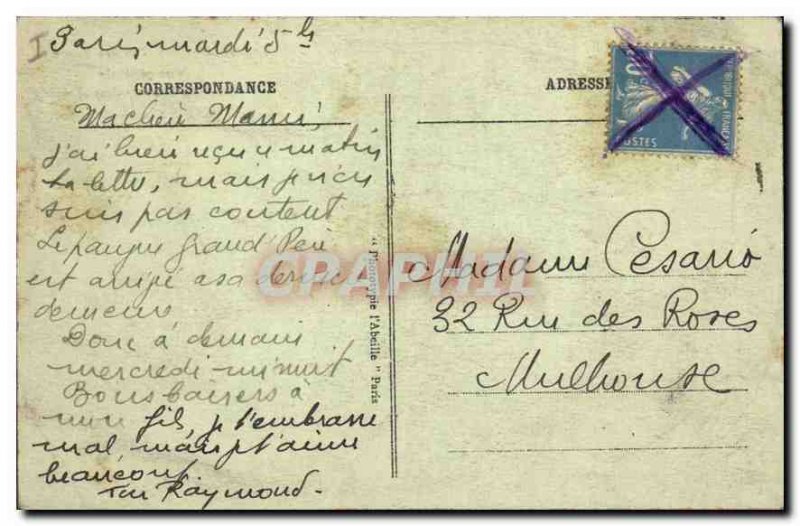 Paris, mardi 5 hs
CORRESPONDANCE
ADRESSE
POSTES
Ma chère Mami,
j'ai bien reçu ce matin
ta lettre, mais je n'en
suis pas content
Le pauvre Grand Père
est arrivé a sa dernière
demeure
Donc à demain
mercredi minuit
Bons baisers à
mon fils, je t'embrasse
mal, mais t'aime
beaucoup.
Ton Raymond.
"Phototypie l'Abeille" Paris
Madame Cesario
32 Rue des Roses
Mulhouse
CPAPHIL